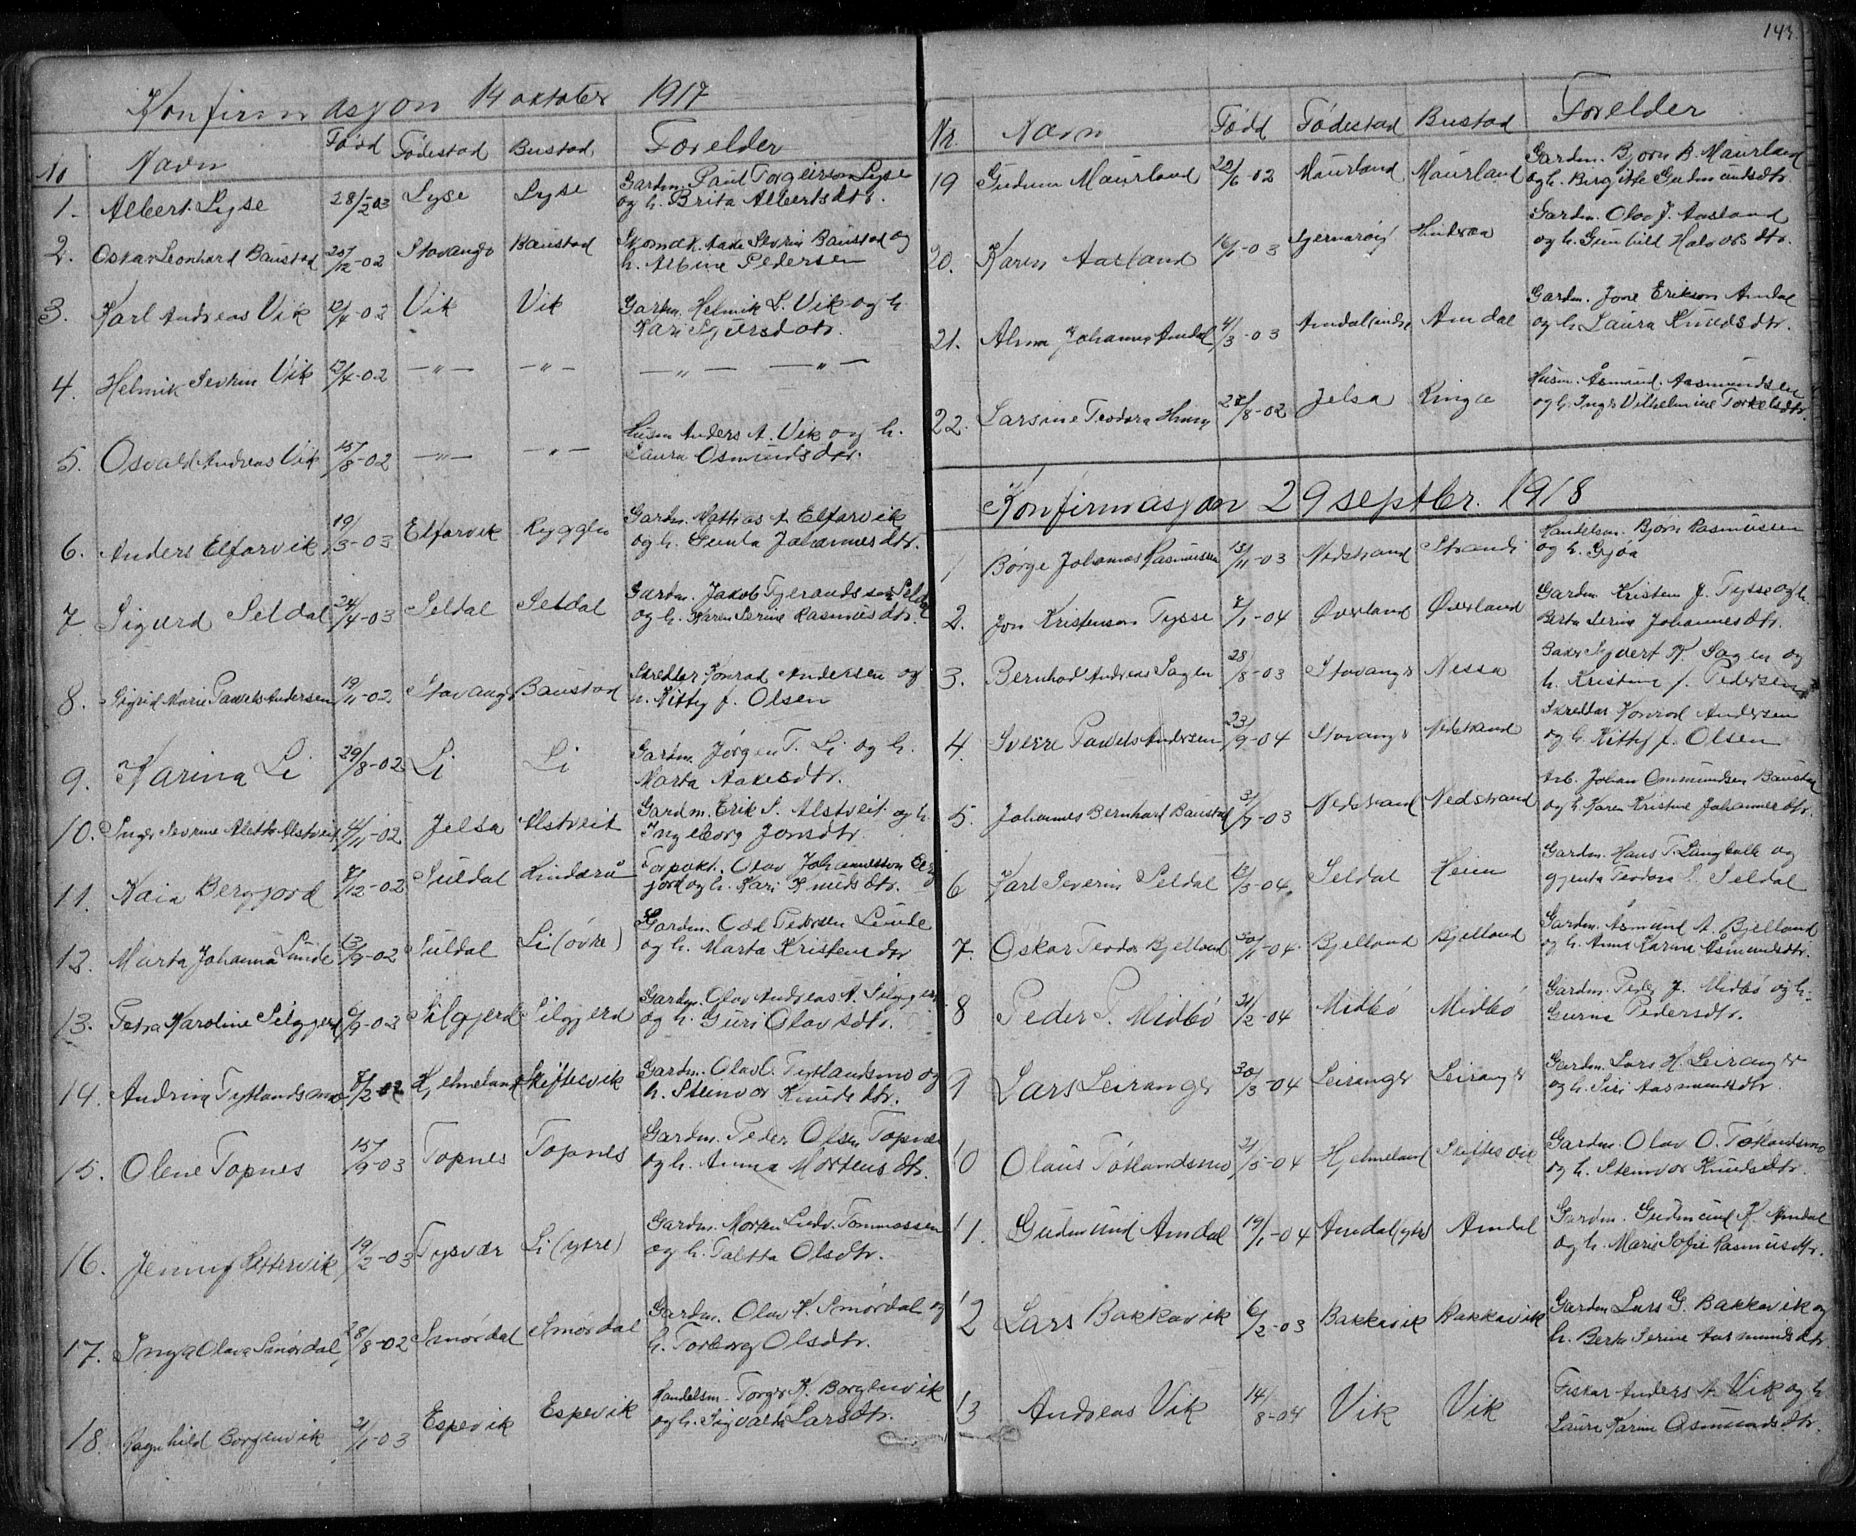 Konfirmasjon 14 oktober 1917
Nr Navn Fødd Fødestad Bustad Forelder
1. Albert Lyse 28/2-03 Lyse Lyse Gardm. Paul Torgeirsen Lyse
og h. Brita Albertsdtr.
2. Oskar Leonhard Baustad 20/12-02 Stavanger Baustad Skomak. Aade Severin Baustad og
h. Albine Pedersen
3. Karl Andreas Vik 12/4-02 Vik Vik Gardm. Helmik L. Vik og h.
Kari Sjursdotr.
4. Helmik Severin Vik 12/4-02 —„— —„— —„— —„—
5. Osvald Andreas Vik 15/8-02 —„— —„— Husm Anders A. Vik og h.
Laura Osmundsdtr.
6. Anders Elfarvik 19/3-03 Elfarvik Gardm. Mathias A Elfarvik
og h. Gunla Johannesdtr.
7 Sigurd Seldal 24/4-03 Seldal Seldal Gardm. Jakob Tjerandssen Seldal
og h. Karen Serine Rasmusdtr.
8. Sigrid Marie Pawels Andersen 19/11-02 Stavang Baustad Skredder Konrad Andersen og
h. Kitty f. Olsen
9. Karina Li 29/8-02 Li Li Gardm. Jørgen T. Li og h.
Marta Aanesdtr.
10. Inger Severine Alette Alstveit 4/11-02 Jelsa Alstveit Gardm. Erik S. Alstveit og h.
Ingeborg Jonsdtr.
11. Kaia Bergfjord 7/12-02 Suldal Hinderå Forpakt. Olav Johannesson Berg
jord og h. Kari Knudsdtr.
12. Marta Johanna Lunde 13/9-02 Suldal Li (øvre) Gardm. Odd Pedersen Lunde
og h. Marta Kristensdtr
13. Petra Karoline Silgjerd 6/9-03 Silgjerd Silgjerd Gardm. Olav Andreas A. Silgjerd
og h. Guri Olavsdtr.
14. Andrina Tytlandsmo 7/2-02 Hjelmeland Skiftesvik Gardm. Olav O. Tytlandsmo og
h. Steinvor Knudsdtr.
15. Olene Topnes 15/9-03 Topnes Topnes Gardm. Peder Olsen Topnes
og h. Anna Mortensdtr.
16. Jenny 19/2-03 Tysvær Li (ytre) Gardm. Morten Ludv. Tommassen
og h. Taletta Olsdtr.
17. Inga Olava Smørdal 28/8-02 Smørdal Smørdal Gardm. Olav K. Smørdal og
h. Torborg Olsdtr.
18. Ragnhild Borgenvik 21/1-03 Espevik Espevik Handelsm. Torger K. Borgenvik
og h. Sigvalda Larsdtr.
143.
Nr. Navn Fødd Fødestad Bustad Forelder
19 Gudrun Maurland 22/6-02 Maurland Maurland Gardm. Bjorn B. Maurland
og h. Birgitte Gudmundsdtr.
20. Karen Aasland 16/1-03 Sjernarøy Hinderaa Gardm. Olav J. Aasland
og h. Gunhild Halvorsdtr.
21. Alma Johanna Amdal 4/3-03 Amdal (indre) Amdal Gardm. Jone Erikson Amdal
og h Laura Knudsdtr.
22. Larsine Teodora 27/8-02 Jelsa Ringe Husm. Åsmund Aasmundsen
og h. Inger Vilhelmine Torkelsdtr.
Konfirmasjon 29 septbr. 1918
1 Børge Johannes Rasmussen 13/11-03 Nedstrand Strand Handelsm. Bjørn Rasmussen
og h. Gjøa
2. Jon Kristenson Tysse 7/1-04 Øverland Øverland Gardm Kristen J. Tysse og h.
Berta Serine Johannesdtr.
3. Bernhad Andreas Sagen 28/8-03 Stavanger Nessa Baker Syvert K. Sagen og
h. Kristine f. Pedersen
4. Sverre Pawels Andersen 23/9-04 Stavanger Nedstrand Skreddar Konrad Andersen
og h. Kitty f. Olsen
5. Johannes Bernhard Baustad 31/7-03 Nedstrand Nedstrand Arb. Johan Ommundsen Baustad
og h. Karen Kristine Johannesdtr.
6 Karl Severin Seldal 12/3-04 Seldal Heim Gardm. Hans T. Langballe og
gjenta Teodora S. Seldal
7. Oskar Teodor Bjelland 30/1-04 Bjelland Bjelland Gardm. Åsmund A. Bjelland
og h. Anne Karine Asmundsdtr.
8 Peder P. Midbø 21/2-04 Midbø Midbø Gardm. Peder J. Midbø og h.
Gurine Pedersdtr.
9 Lars Leiranger 30/3-04 Leiranger Leiranger Gardm. Lars H. Leiranger
og h. Siri Aasmundsdtr.
10 Olaus Tøtlandsmo 31/5-04 Hjelmeland Skiftesvik Gardm. Olav O. Tøtlandsmo
og h. Steinvor Knudsdtr.
11. Gudmund Amdal 19/1-04 Amdal (ytre) Amdal Gardm. Gudmund K. Amdal
og h. Maria Sofie Rasmusdtr.
12 Lars Bakkavik 6/2-03 Bakkavik Bakkavik Gardm Lars G. Bakkavik og
h. Berta Serine Aasmundsdtr.
13 Andreas Vik 14/8-04 Vik Vik Fiskar Anders A Vik og h
Laura Karine Osmundsdtr.